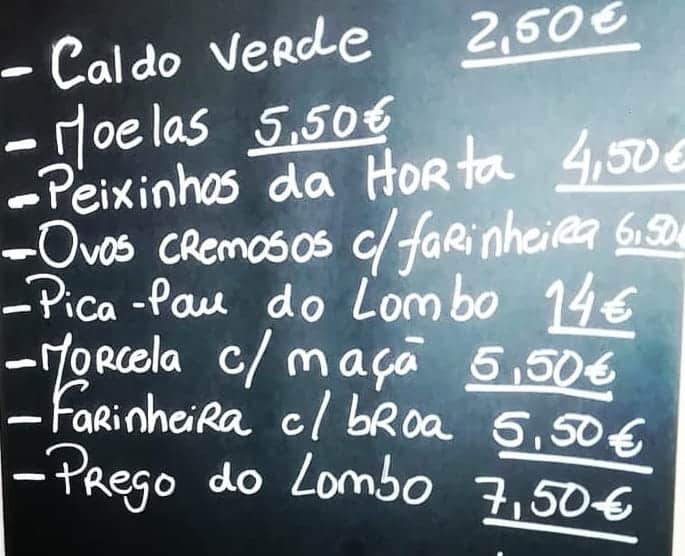 - Caldo Verde 2,50€
- Moelas 5,50€
- Peixinhos da Horta 4,50€
- Ovos cremosos c/farinheira 6,50€
- Pica-Pau do Lombo 14€
- Morcela c/ maçã 5,50€
- Farinheira c/ broa 5,50€
- Prego do Lombo 7,50€